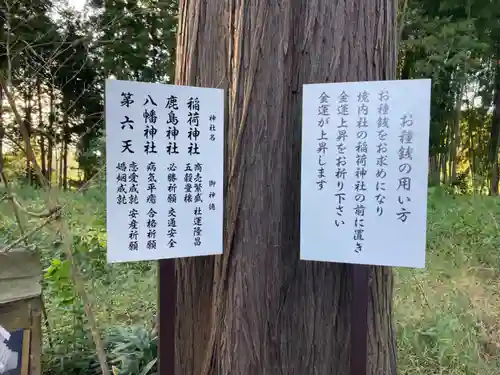 お種銭の用い方
お種銭をお求めになり
境内社の稲荷神社の前に置き
金運上昇をお祈り下さい
金運が上昇します
神社名
御神徳
稲荷神社
商売繁盛 社運隆昌
五穀豊穣
鹿島神社
必勝祈願 交通安全
八幡神社
病気平癒 合格祈願
第六天
恋愛成就 安産祈願
婚姻成就